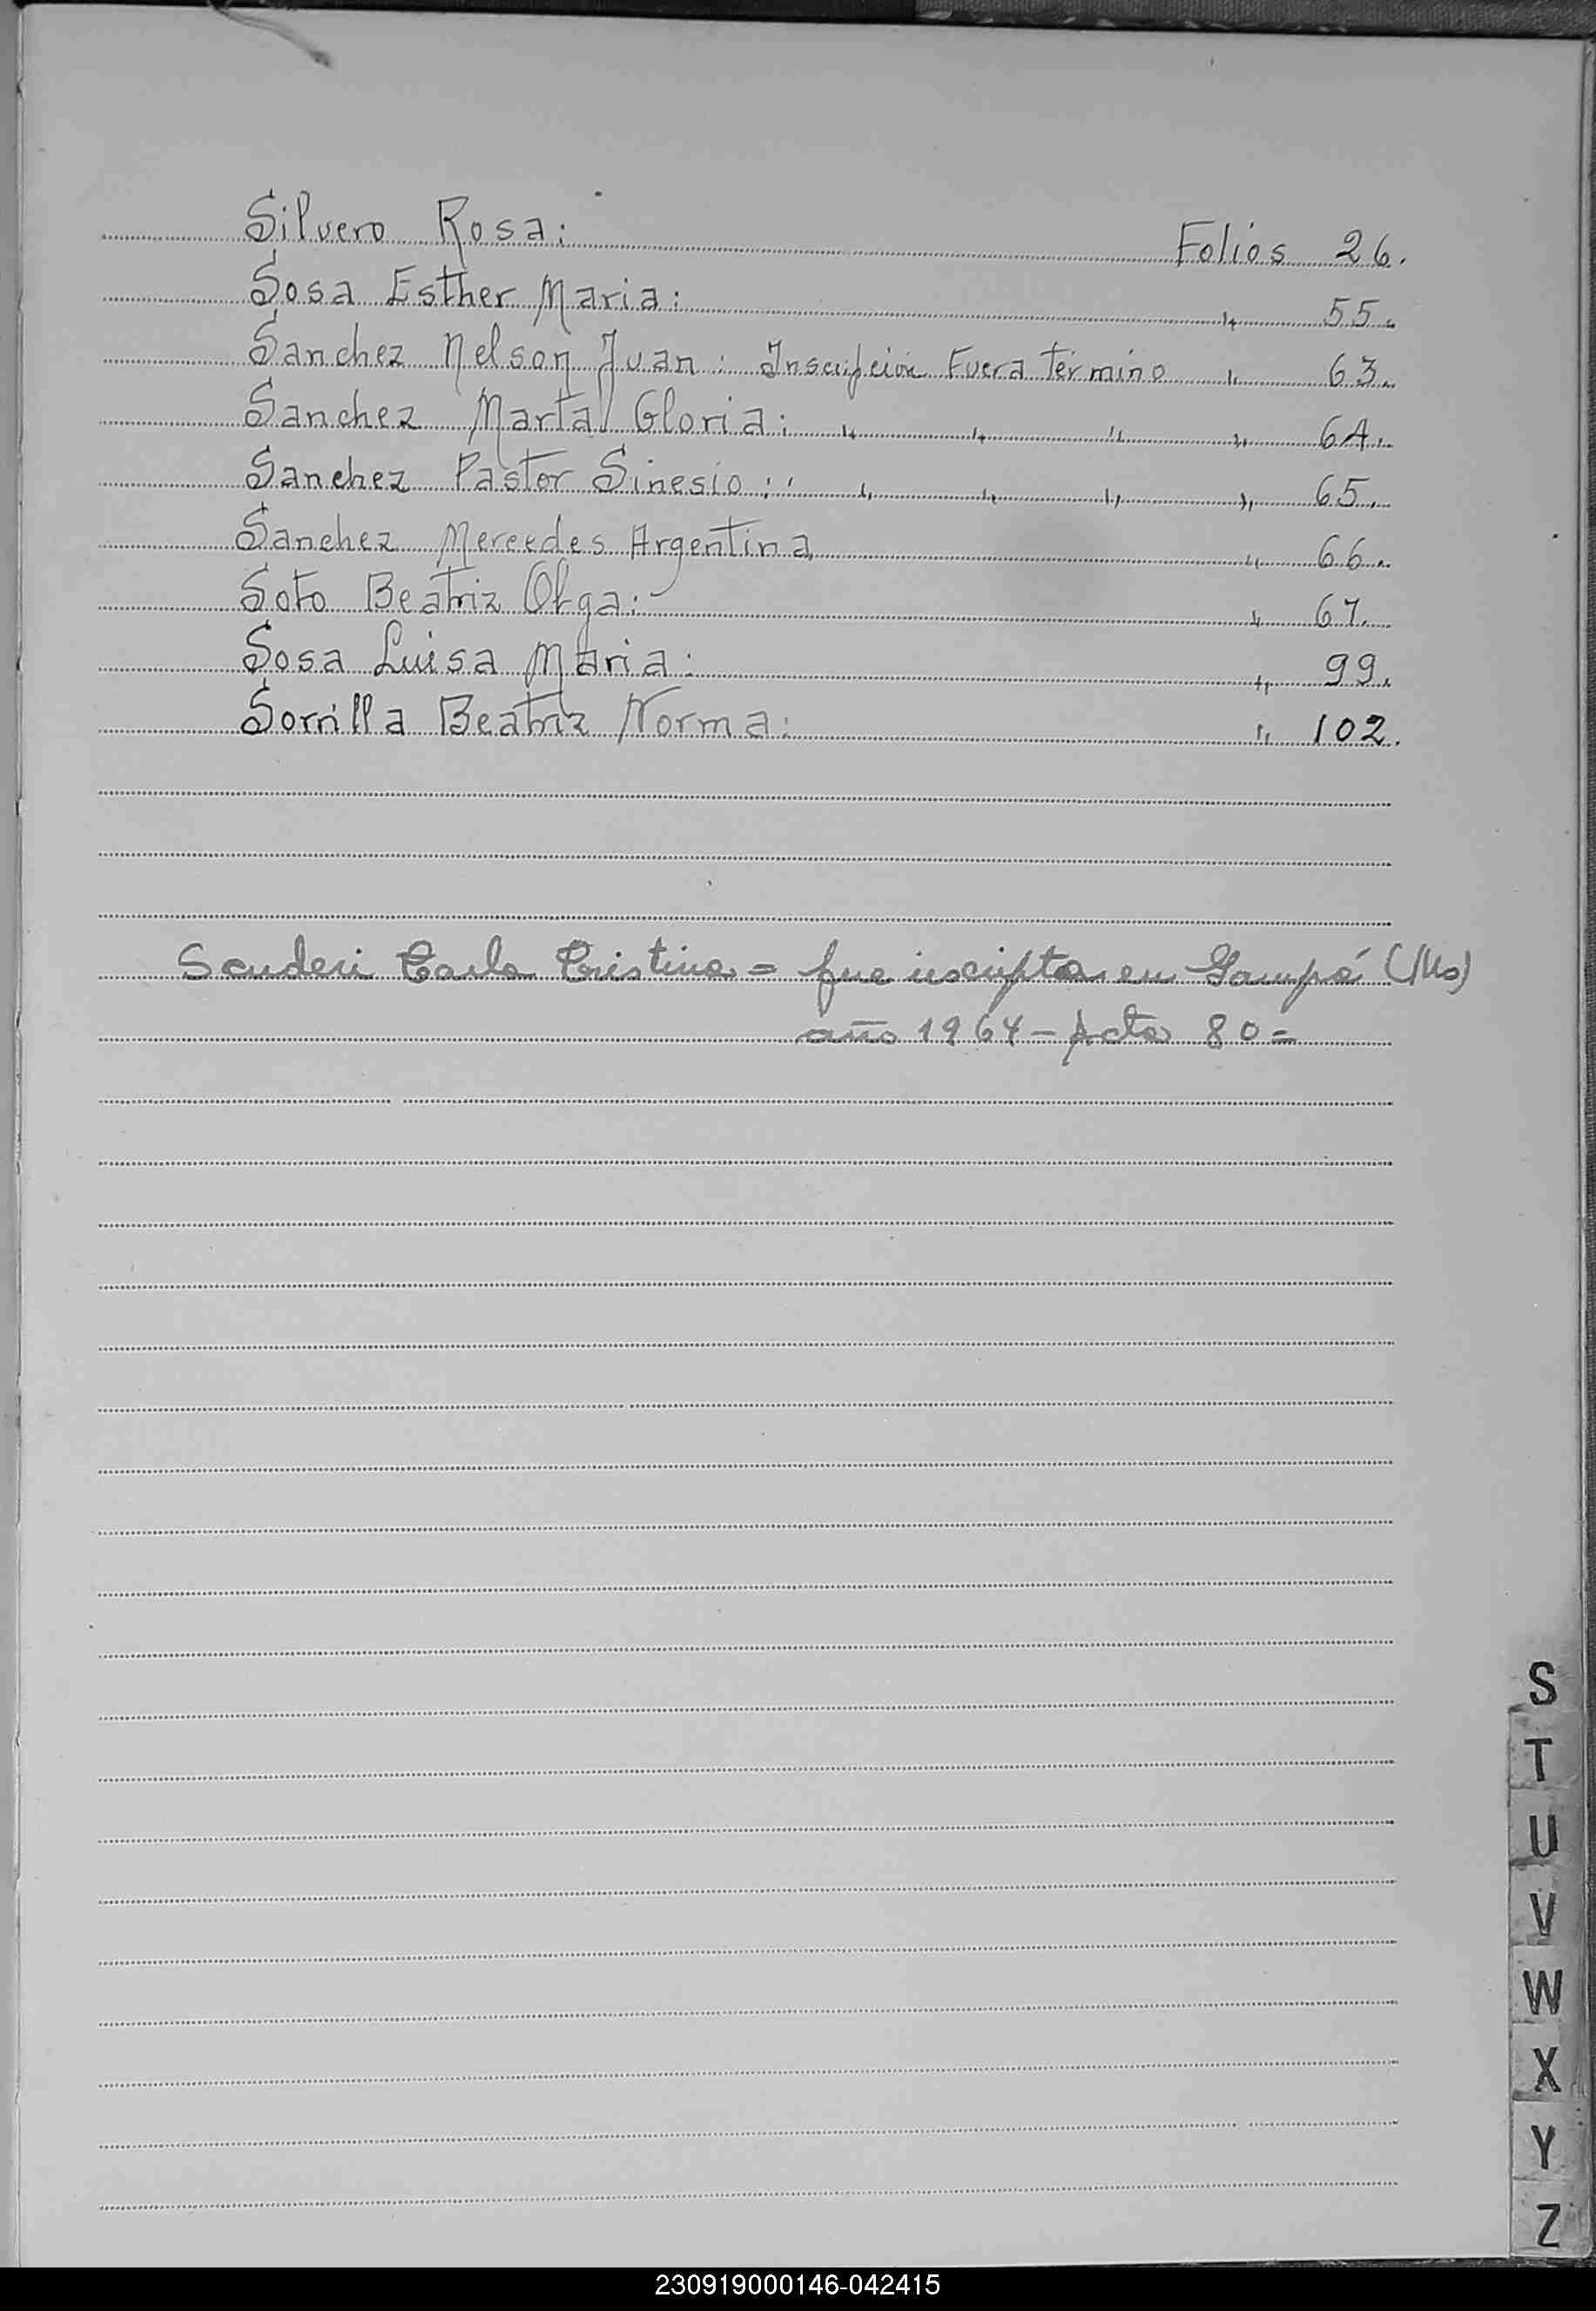 Silvero Rosa: Folios 26.
Sosa Esther Maria: " 55.
Sanchez Nelson Juan: Inscripción Fuera Término " 63.
Sanchez Marta Gloria: " " " " 64.
Sanchez Pastor Sinesio: " " " " 65.
Sanchez Mercedes Argentina " 66.
Soto Beatriz Olga: " 67.
Sosa Luisa Maria: " 99.
Sorrilla Beatriz Norma: " 102.
Scuderi Carla Cristina = fue inscripta en Garupá (Ms)
año 1964 - Acta 80 =
S
T
U
V
W
X
Y
Z
230919000146-042415